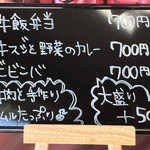 牛飯弁当 700円
牛スジと野菜のカレー 700円
ビビンバ 700円
肉と手作り
ムルたっぷり♪
大盛り
+50